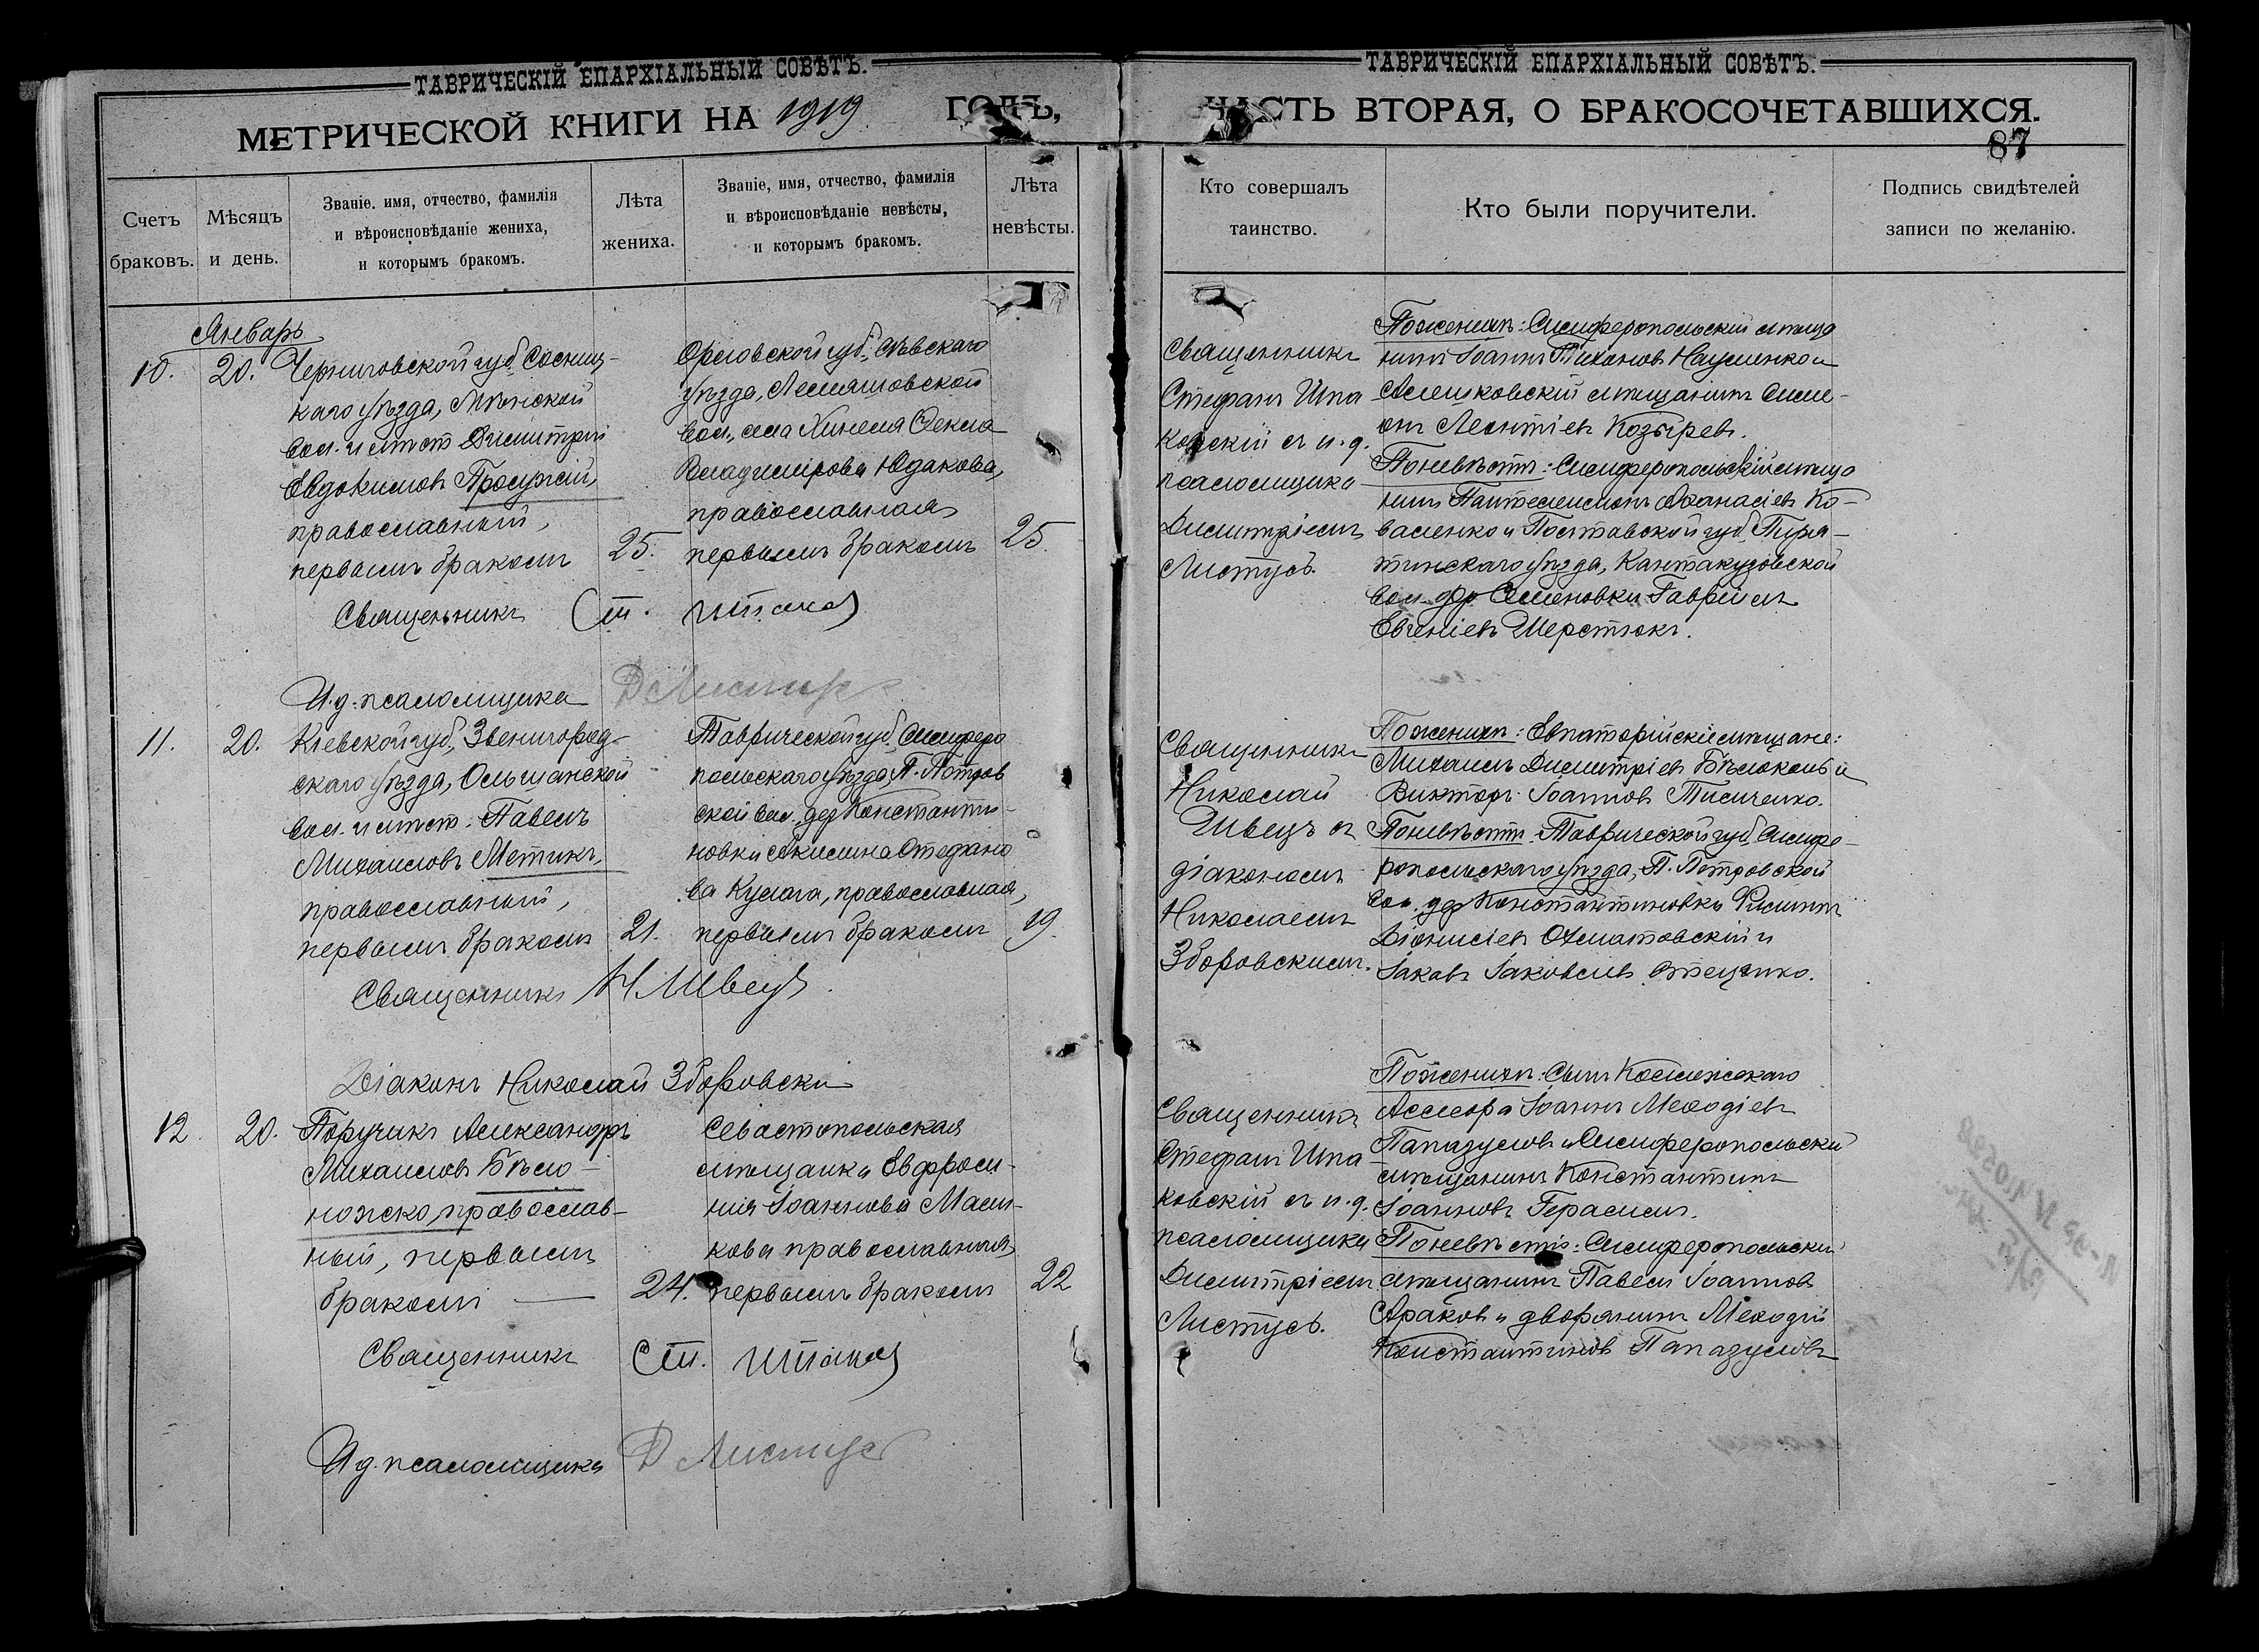 ТАВРИЧЕСКІЙ ЕПАРХІАЛЬНЫЙ СОВѢТЪ.
МЕТРИЧЕСКОЙ КНИГИ НА 1919 ГОДЪ,
Счетъ браковъ.
Мѣсяцъ и день.
Званіе. имя, отчество, фамилія
и вѣроисповѣданіе жениха,
и которымъ бракомъ.
Лѣта жениха.
Званіе, имя, отчество, фамилія
и вѣроисповѣданіе невѣсты,
и которымъ бракомъ.
Лѣта невѣсты.
Январь
10.
20.
Черниговской губ. Сосниц-
каго уѣзда, Мѣнской
вол. и мѣст Димитрій
Евдокимовъ
православный,
первымъ бракомъ
25.
Орловской губ. Сѣвскаго
уѣзда,
вол., села Хинеля Ѳекла
Владимірова Юдакова,
православная
первымъ бракомъ
25.
Священникъ Ст.
И.д. псаломщика Д Листусъ
11.
20.
Кіевской губ., Звенигород-
скаго уѣзда, Ольшанской
вол. и мѣст. Павелъ
Михаиловъ Метикъ,
православный,
первымъ бракомъ
21.
Таврической губ. Симферо
польскаго уѣзда, П. Петров
ской вол. дер Константи-
новки Акилина Стефано
ва Кулага, православная,
первымъ бракомъ
19.
Священникъ Н Швецъ.
Діаконъ Николай Зборовскій
12.
20.
Поручикъ Александръ
Михаиловъ Бѣло-
ножко, православ-
ный, первымъ
бракомъ —
24.
Севастопольская
мѣщанка Евфроси-
нія Іоаннова Масю-
кова православная
первымъ бракомъ
22
Священникъ Ст.
И д. псаломщика Д Листусъ
ТАВРИЧЕСКІЙ ЕПАРХІАЛЬНЫЙ СОВѢТЪ.
ЧАСТЬ ВТОРАЯ, О БРАКОСОЧЕТАВШИХСЯ.
87
Кто совершалъ таинство.
Кто были поручители.
Подпись свидѣтелей
записи по желанію.
Священникъ
Стефанъ Шпа
ковскій съ и.д.
псаломщика
Димитріемъ
Листусъ.
По женихѣ: Симферопольскій мѣща
нинъ Іоаннъ Тихоновъ Науменко и
Алешковскій мѣщанинъ Симе-
онъ Леонтіевъ Козыревъ.
По невѣстѣ: Симферопольскій мѣща
нинъ Пантелеимонъ Аѳанасіевъ Ко-
валенко и Полтавской губ. Пиря-
тинскаго уѣзда, Кантакузовской
вол. Семеновки Гавріилъ
Евгеніевъ Шерстюкъ.
Священникъ
Николай
Швецъ съ
діакономъ
Николаемъ
Зборовскимъ.
По женихѣ: Евпаторійскіе мѣщане:
Михаилъ Димитріевъ Бѣлоконь и
Викторъ Іоанновъ Тисиченко.
По невѣстѣ: Таврической губ. Симфе-
ропольскаго уѣзда, П. Петровской
вол. дер Константиновки Филиппъ
Діонисіевъ Охматовскій и
Іаковъ Іаковлевъ Стеценко.
Священникъ
Стефанъ Шпа-
ковскій съ и.д.
псаломщика
Димитріемъ
Листусъ.
По женихѣ: Сынъ Коллежскаго
Ассесора Іоаннъ Меѳодіевъ
Папазуловъ и Симферопольскій
мѣщанинъ Константинъ
Іоанновъ Герасимъ.
По невѣстѣ: Симферопольскій
мѣщанинъ Павелъ Іоанновъ
Араковъ и дворянинъ Меѳодій
Константиновъ Папазуловъ